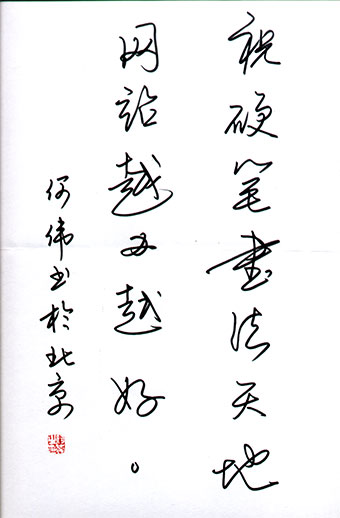 祝硬笔書法天地
网站越办越好。
何伟书於北京